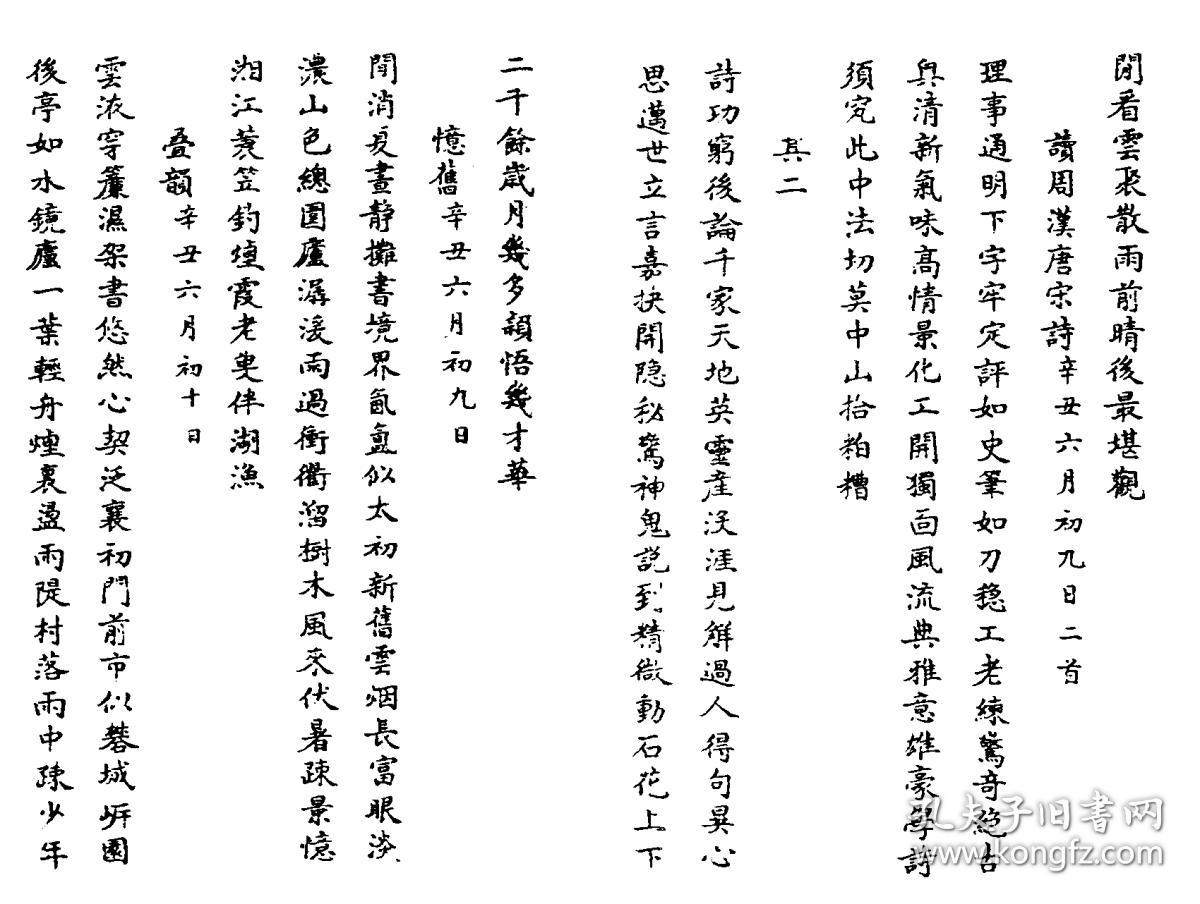 閒看雲聚散雨前晴後最堪觀
讀周漢唐宋詩辛丑六月初九日二首
理事通明下字牢定評如史筆如刀穩工老練驚奇絕古
與清新氣味高情景化工開獨面風流典雅意雄豪學詩
須究此中法切莫中山拾粕糟
其二
詩功窮後論千家天地英靈產沒涯見解過人得句異心
思邁世立言嘉抉開隐秘驚神鬼説到精微動石花上下
二千餘歲月幾多頴悟幾才華
憶舊辛丑六月初九日
閒消夏晝靜攤書境界氤氳似太初新舊雲烟長富眼淡
濃山色總圍廬潺湲雨過衝衢溜樹木風來伏暑疎景憶
湘江蓑笠釣煙霞老叟伴湖漁
叠韻辛丑六月初十日
雲液穿簾濕架書悠然心契泛襄初門前市似城岍園
後亭如水鏡廬一葉輕舟煙裏盪兩隄村落雨中疎少年
孔夫子旧书网
www.kongfz.com